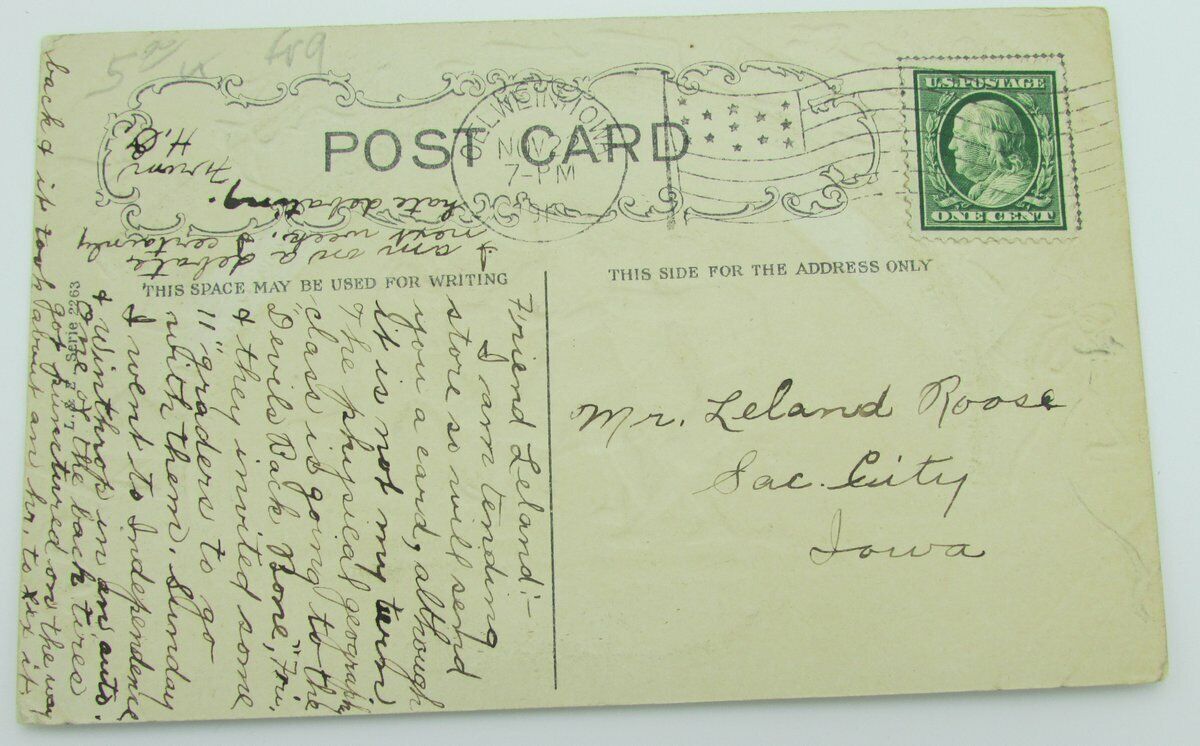 5 00/xx
fr9
POST CARD
OELWEIN, IOWA
NOV 2
7-PM
U.S. POSTAGE
ONE CENT
THIS SPACE MAY BE USED FOR WRITING
THIS SIDE FOR THE ADDRESS ONLY
Mr. Leland Roose
Sac. City
Iowa
Friend Leland:-
I am tending
store so will send
you a card, although
it is not my turn
The physical geography
class is going to the
"Devils Back Bone," Fri.
& they invited some
11" graders to go
with them. Sunday
I went to Independence
& Winthrop in an auto.
One of the back tires
got punctured on the way
back & it took about an hr. to fix it.
I am on a debate
next week. I certainly
hate debating.
From
H.C.
Serie 2263